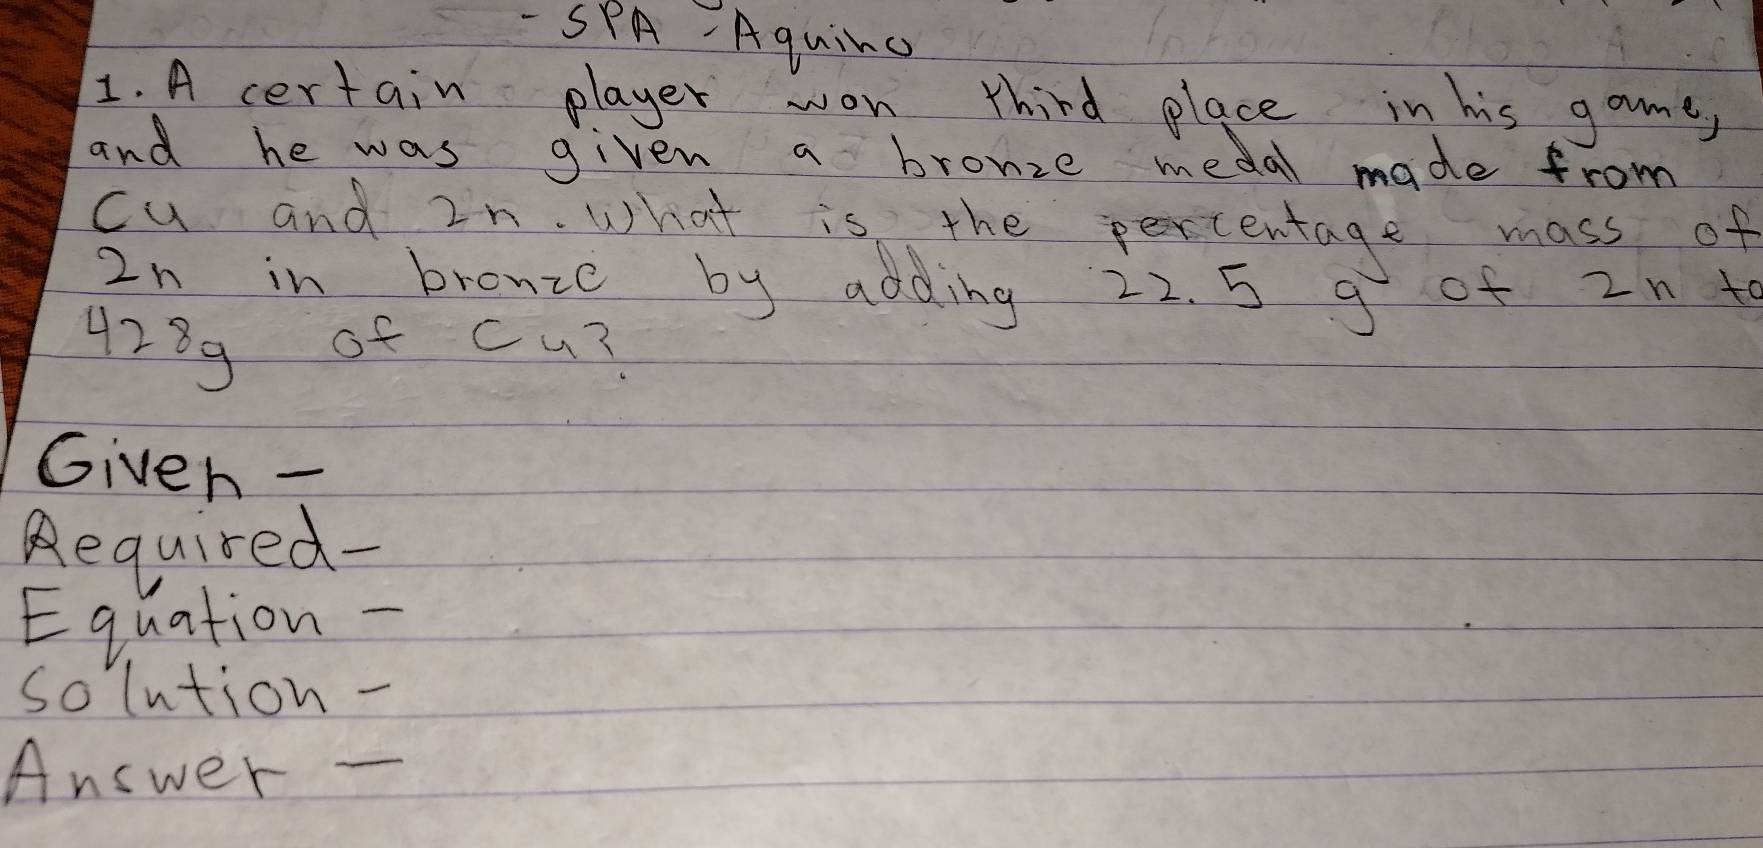 - SPA - Aquino
1. A certain player won third place in his game,
and he was given a bronze medal made from
Cu and Zn. What is the percentage mass of
Zn in bronze by adding 22.5 g of Zn to
428g of Cu?
Given -
Required -
Equation -
Solution -
Answer -